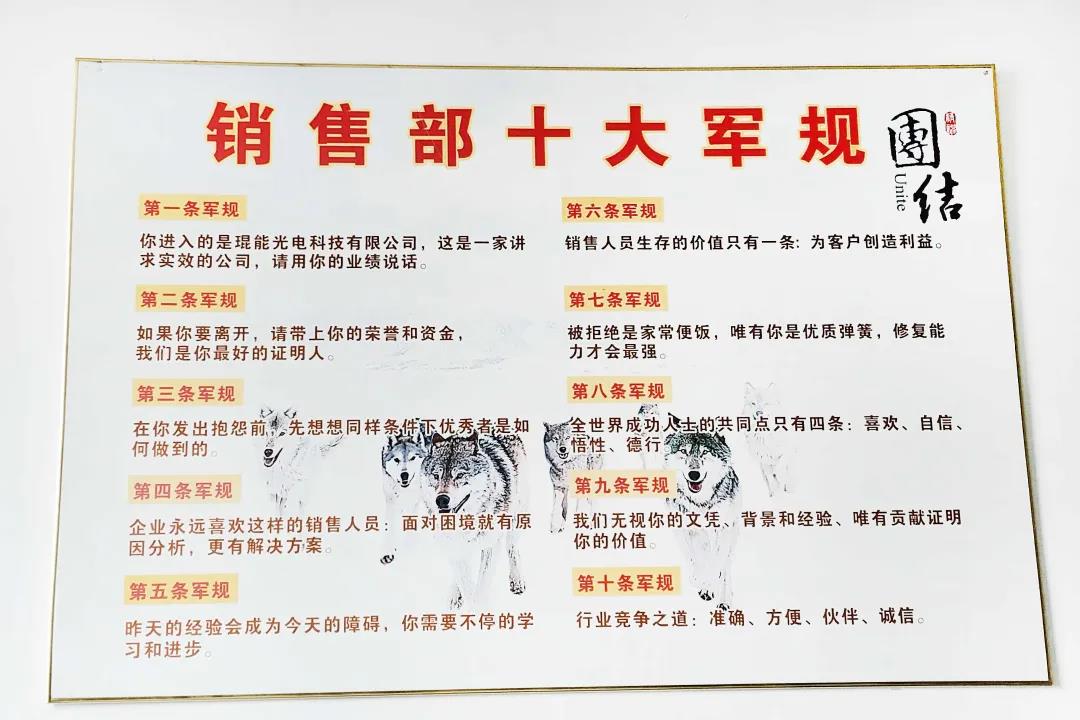 销售部十大军规
團结
Unite
第一条军规
你进入的是琨能光电科技有限公司，这是一家讲
求实效的公司，请用你的业绩说话。
第二条军规
如果你要离开，请带上你的荣誉和资金，
我们是你最好的证明人。
第三条军规
在你发出抱怨前，先想想同样条件下优秀者是如
何做到的。
第四条军规
企业永远喜欢这样的销售人员：面对困境就有原
因分析，更有解决方案。
第五条军规
昨天的经验会成为今天的障碍，你需要不停的学
习和进步。
第六条军规
销售人员生存的价值只有一条：为客户创造利益。
第七条军规
被拒绝是家常便饭，唯有你是优质弹簧，修复能
力才会最强。
第八条军规
全世界成功人士的共同点只有四条：喜欢、自信、
悟性、德行。
第九条军规
我们无视你的文凭、背景和经验、唯有贡献证明
你的价值。
第十条军规
行业竞争之道：准确、方便、伙伴、诚信。